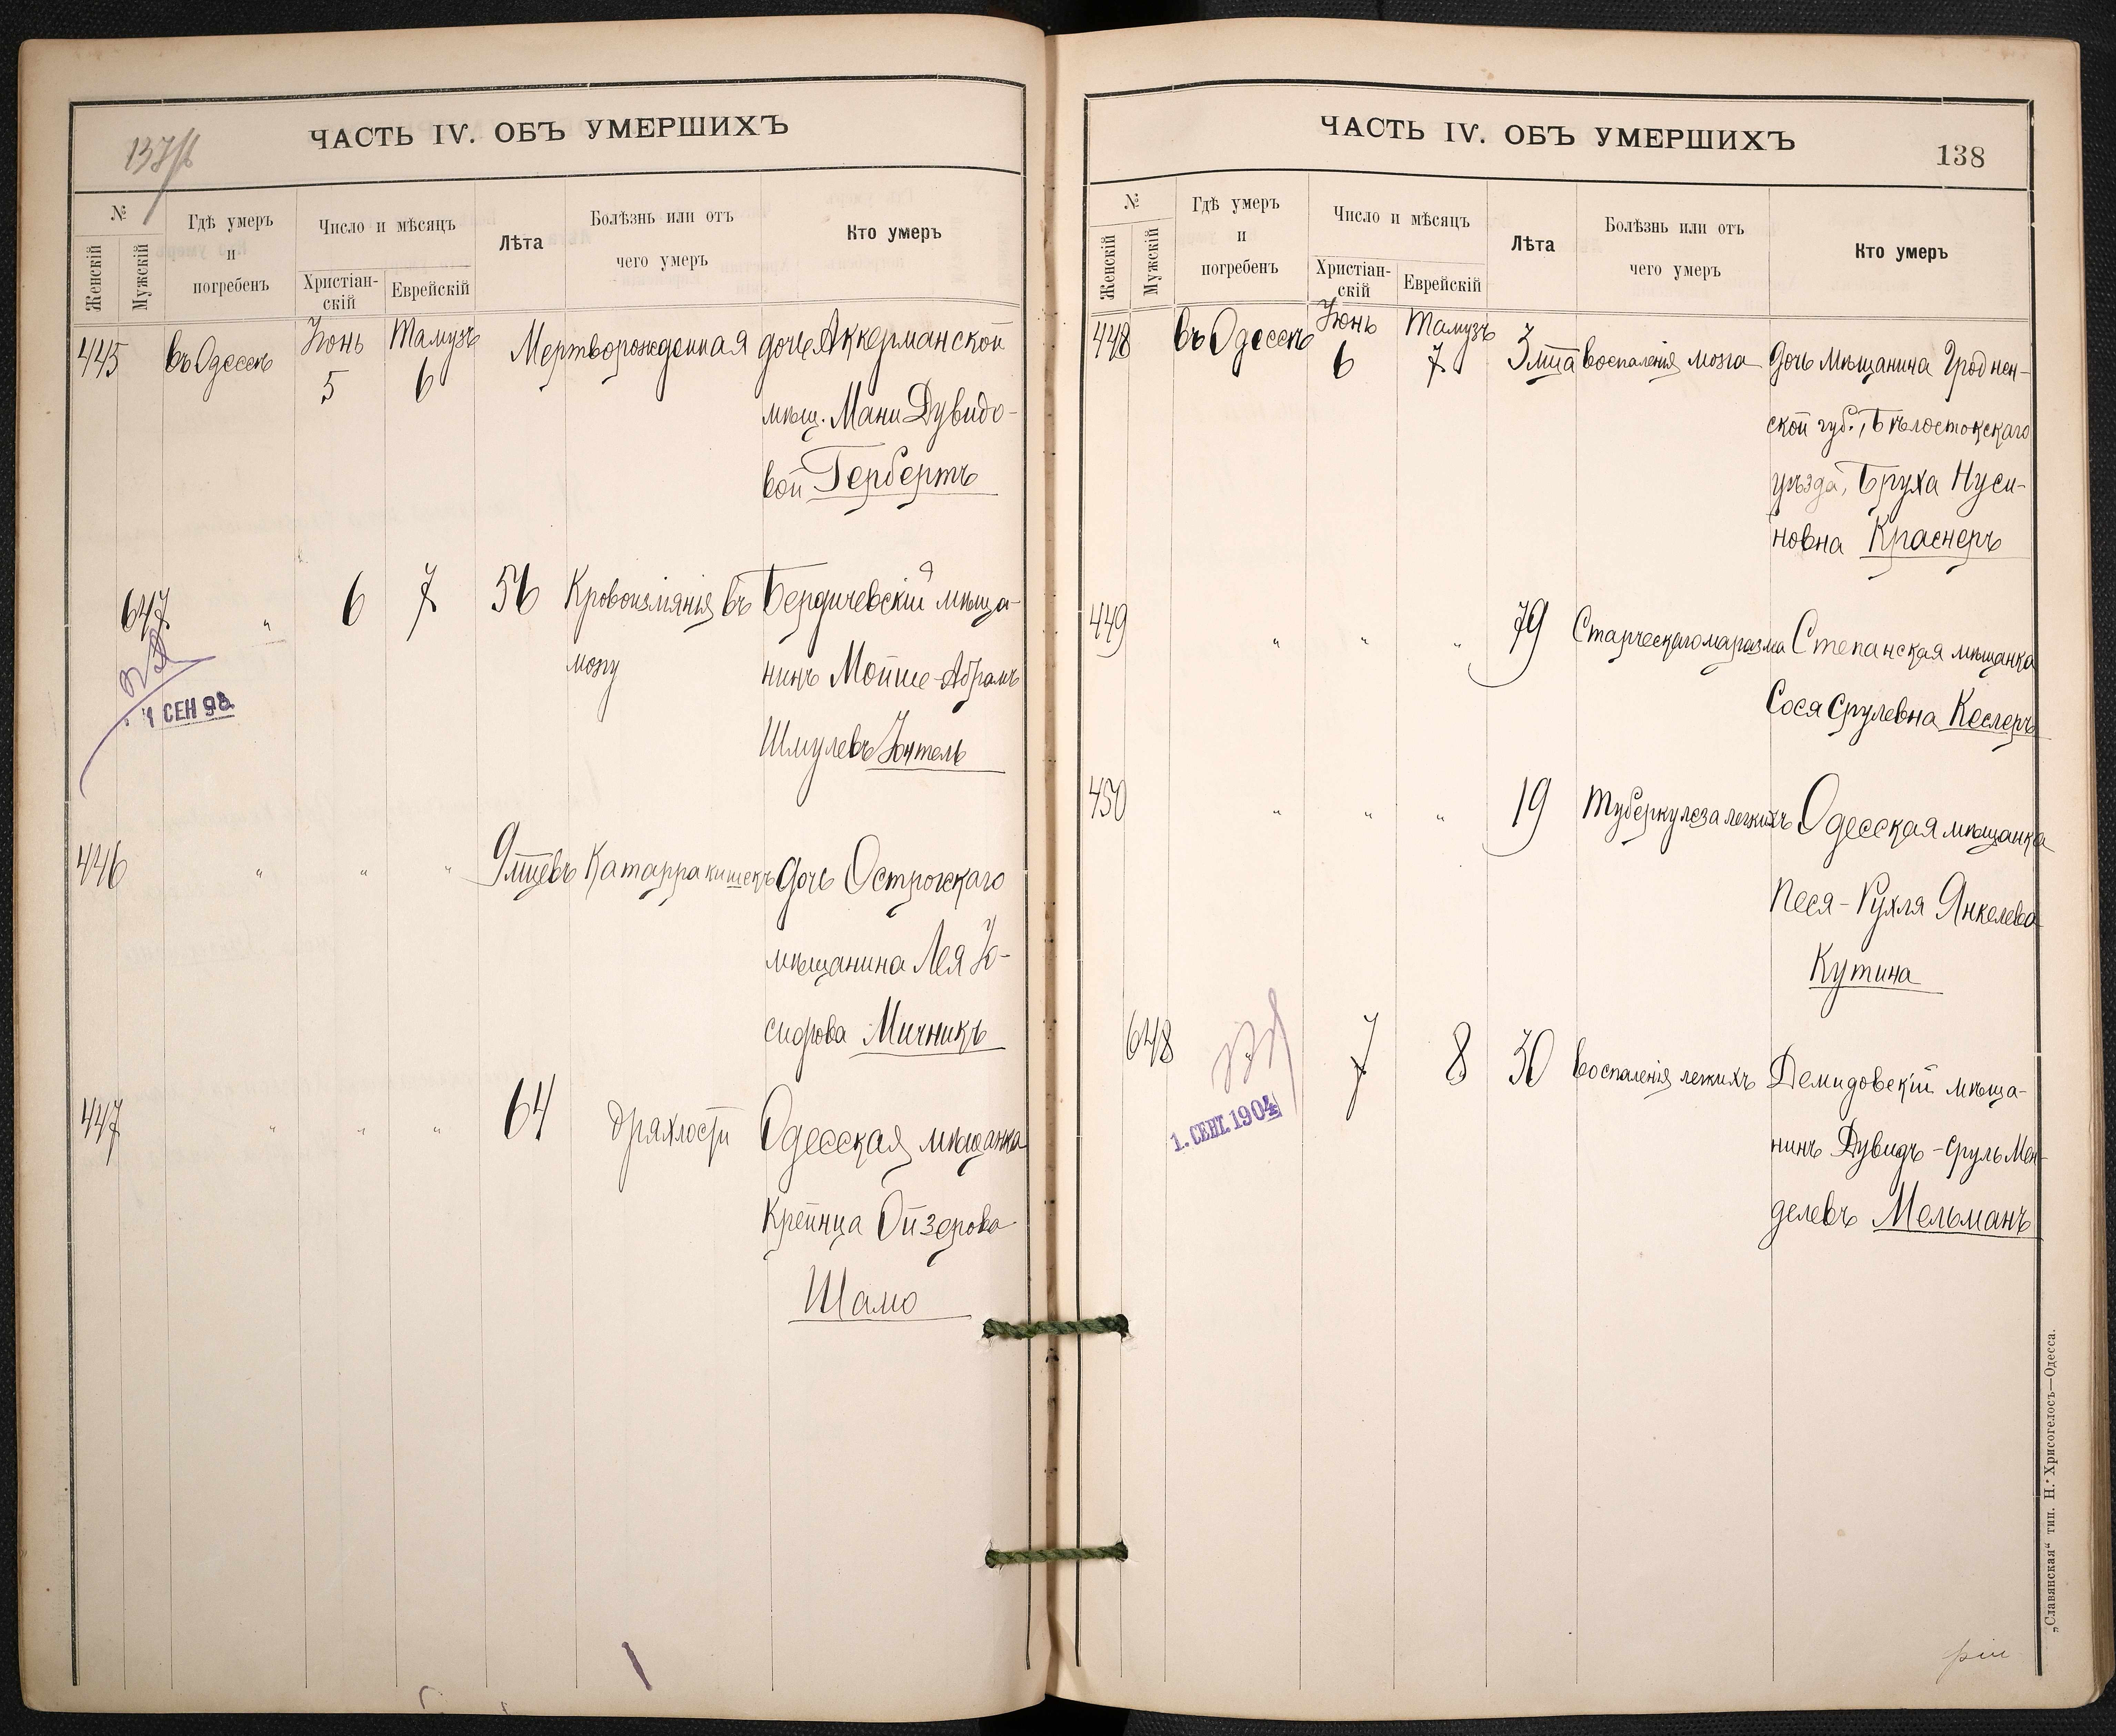 ЧАСТЬ IV. ОБЪ УМЕРШИХЪ
№
Женскій
Мужскій
Гдѣ умеръ
и
погребенъ
Число и мѣсяцъ
Христіан-
скій
Еврейскій
Лѣта
Болѣзнь или отъ
чего умеръ
Кто умеръ
445 въ Одессѣ Іюнь 5 Тамузъ 6 Мертворожденная дочь Аккерманской
мѣщ. Мани Дувидо-
вой Гербертъ
647 " 6 7 56 Кровоизліянія въ Бердичевскій мѣща-
мозгу нинъ Мойше-Абрамъ
1 СЕН 98 Шмулевъ Юнтель
446 " " " 9 мцевъ Катарра кишекъ дочь Острожскаго
мѣщанина Лея Іо-
сифова Мичникъ
447 " " " 64 дряхлости Одесская мѣщанка
Крейнца Ойзерова
Шамо
ЧАСТЬ IV. ОБЪ УМЕРШИХЪ
138
№
Женскій
Мужскій
Гдѣ умеръ
и
погребенъ
Число и мѣсяцъ
Христіан-
скій
Еврейскій
Лѣта
Болѣзнь или отъ
чего умеръ
Кто умеръ
448 въ Одессѣ Іюнь 6 Тамузъ 7 3 мца воспаленія мозга дочь мѣщанина Гроднен-
ской губ., Бѣлостокскаго
уѣзда, Бруха Нуси-
новна Краснеръ
449 " " " 79 Старческаго маразма Степанская мѣщанка
Сося Срулевна Кеслеръ
450 " " " 19 Туберкулеза легкихъ Одесская мѣщанка
Песя-Рухля Янкелева
Кутина
648 " 7 8 30 воспаленія легкихъ Демидовскій мѣща-
1. СЕНТ. 1904 нинъ Дувидъ-Сруль Мен-
делевъ Мельманъ
„Славянская“ тип. Н. Хрисогелосъ—Одесса.